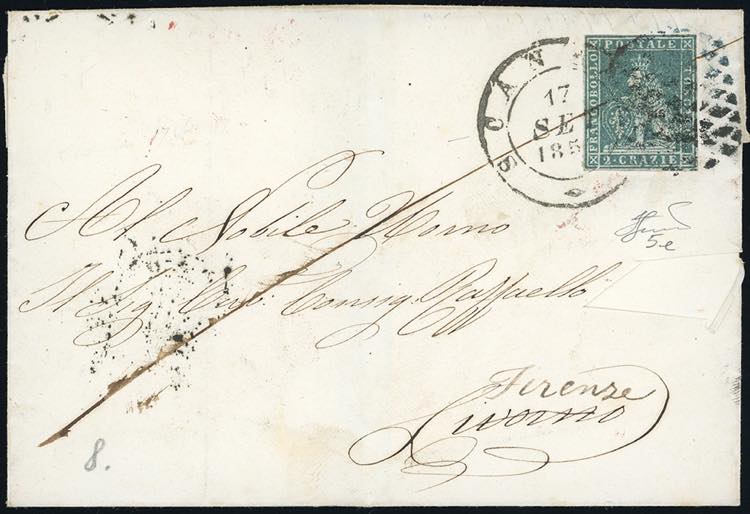 SCAN
17
SE
185
POSTALE
FRANCOBOLLO
2·CRAZIE
5e
Al Nobile Uomo
Il Sig. Cav. Consig. Raffaello
Firenze
Livorno
8.